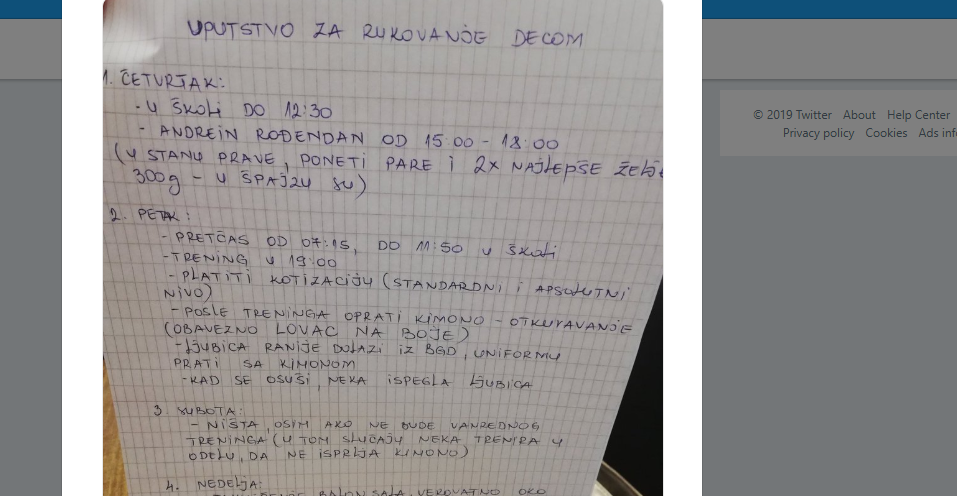 UPUTSTVO ZA RUKOVANJE DECOM
1. ČETVRTAK:
- U ŠKOLI DO 12:30
- ANDREIN ROĐENDAN OD 15:00 - 18:00
(U STANU PRAVE, PONETI PARE I 2X NAJLEPŠE ŽELJE
300g - U ŠPAJZU SU)
2. PETAK:
- PRETČAS OD 07:15, DO 11:50 U ŠKOLI
- TRENING U 19:00
- PLATITI KOTIZACIJU (STANDARDNI I APSOLUTNI
NIVO)
- POSLE TRENINGA OPRATI KIMONO - OTKUVAVANJE
(OBAVEZNO LOVAC NA BOJE)
- LJUBICA RANIJE DOLAZI IZ BGD, UNIFORMU
PRATI SA KIMONOM
- KAD SE OSUŠI, NEKA ISPEGLA LJUBICA
3. SUBOTA:
- NIŠTA, OSIM AKO NE BUDE VANREDNOG
TRENINGA (U TOM SLUČAJU NEKA TRENIRA U
ODELU, DA NE ISPRLJA KIMONO)
4. NEDELJA:
BALON SALA, VEROVATNO OKO
© 2019 Twitter About Help Center
Privacy policy Cookies Ads info